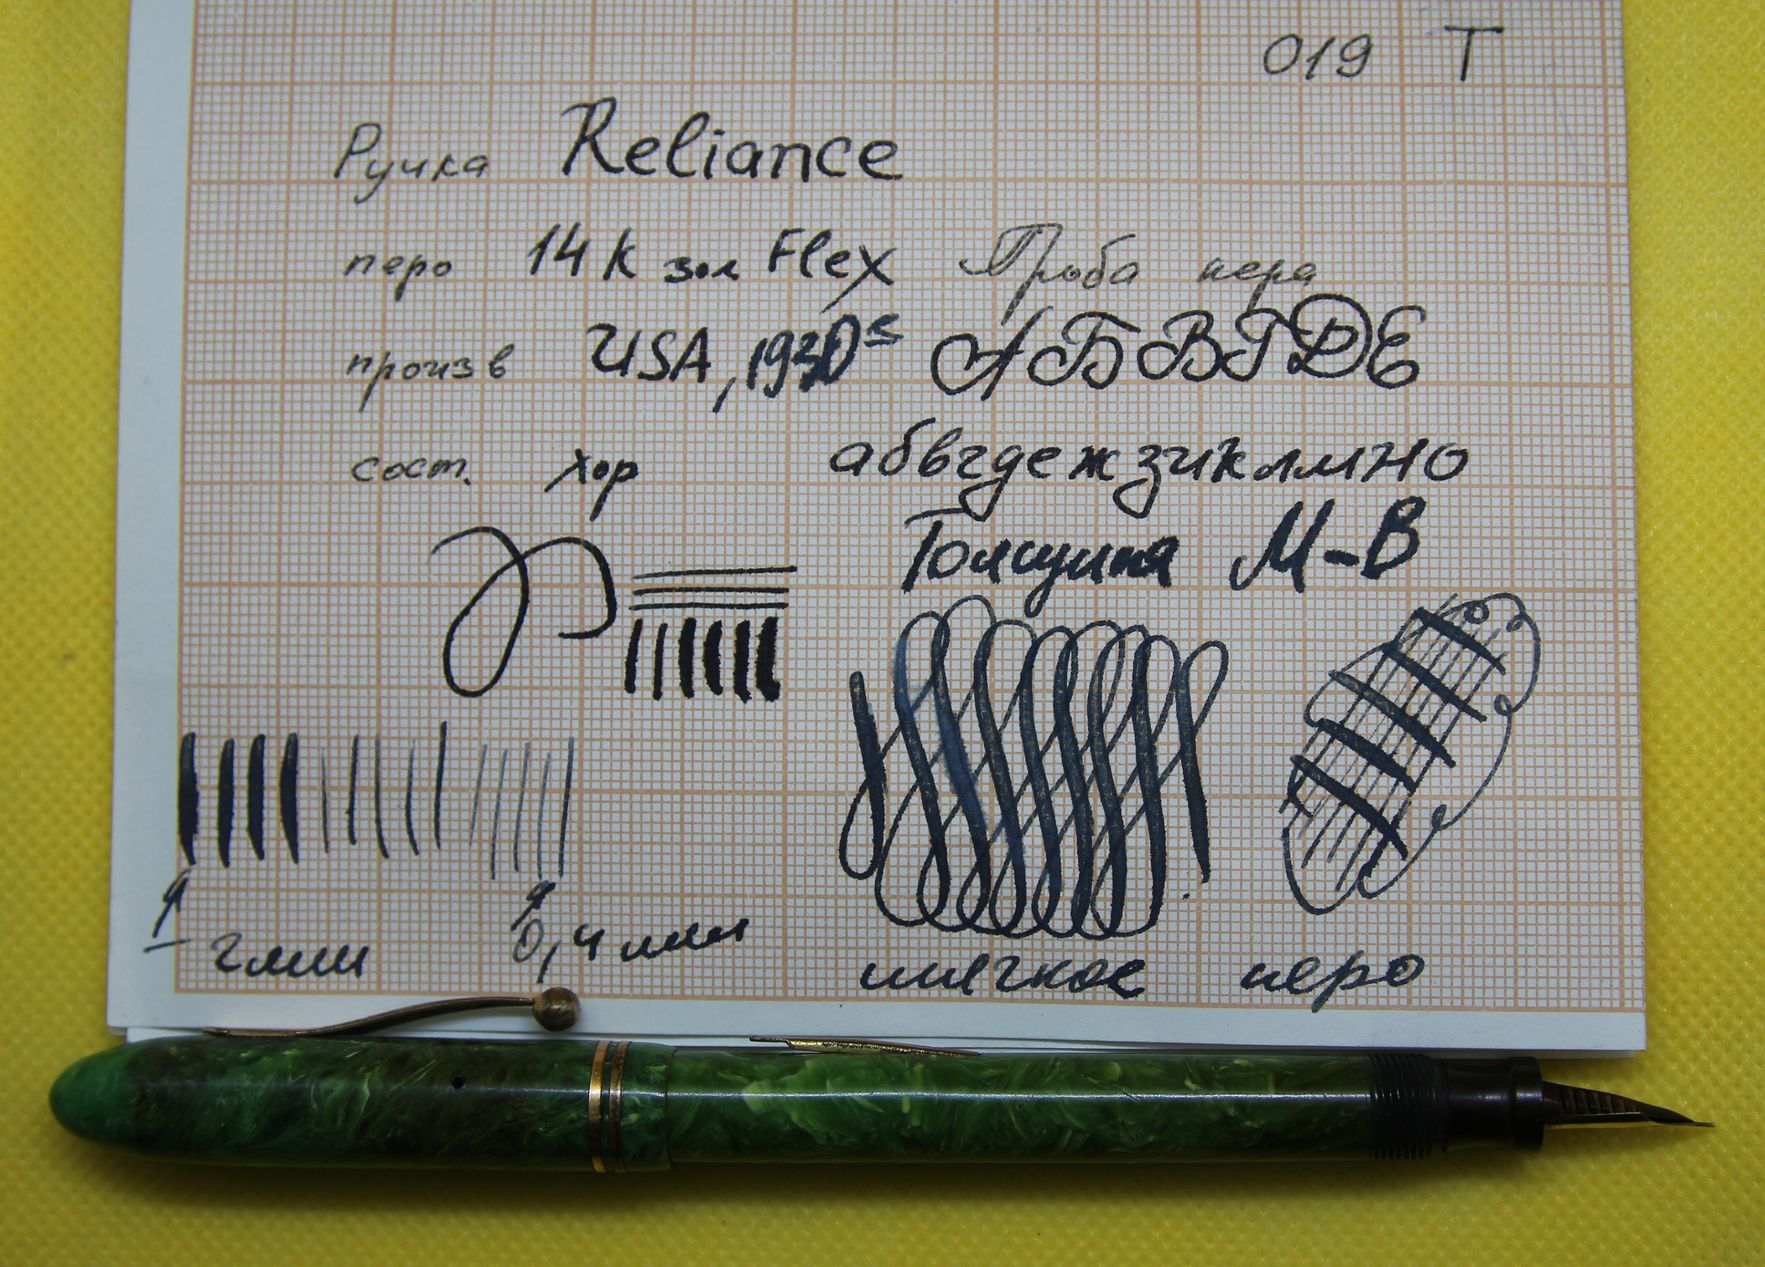 019 Т
Ручка Reliance
перо 14 К зол Flex Проба пера
произв USA, 1930s АБВГДЕ
сост. хор абвгдежзиклмно
Толщина М-В
2 мм 0,4 мм
мягкое перо